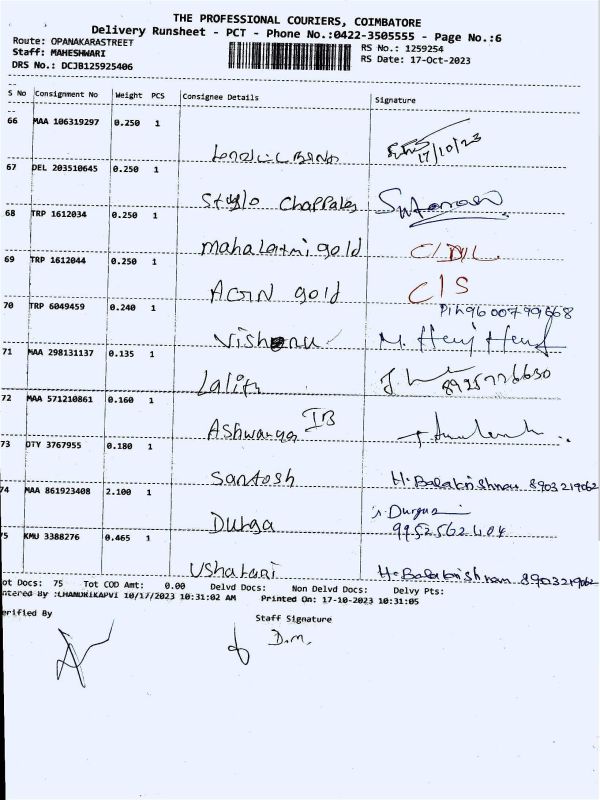 THE PROFESSIONAL COURIERS, COIMBATORE
Delivery Runsheet - PCT - Phone No.:0422-3505555 - Page No.:6
Route: OPANAKARASTREET
Staff: MAHESHWARI
DRS No.: DCJB125925406
RS No.: 1259254
RS Date: 17-Oct-2023
S No Consignment No Weight PCS Consignee Details Signature
66 MAA 106319297 0.250 1
17/10/23
67 DEL 203510645 0.250 1
Stylo Chappales
68 TRP 1612034 0.250 1
mahalaxmi gold
69 TRP 1612044 0.250 1
AGN gold C/S
70 TRP 6049459 0.240 1 9600799668
Vishnu
71 MAA 298131137 0.135 1
Lalith 8925776630
72 MAA 571210861 0.160 1
Ashwanga IB
73 DTY 3767955 0.180 1
Santosh H. Balakrishnan 8903219062
74 MAA 861923408 2.100 1
Durga Durga
9952562404
75 KMU 3388276 0.465 1
Usharani H. Balakrishnan 8903219062
ot Docs: 75 Tot COD Amt: 0.00 Delvd Docs: Non Delvd Docs: Delvy Pts:
ntered By :CHANDRIKAPVI 10/17/2023 10:31:02 AM Printed On: 17-10-2023 10:31:05
erified By
Staff Signature
D.M.